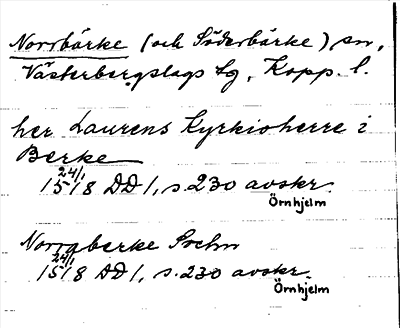 Norrbärke (och Söderbärke) sn,
Västerbergslags tg, Kopp. l.
her Laurens Kyrkioherre i
Berke
24/1
1518 DD 1, s. 230 avskr.
Örnhjelm
Norraberke Sochn
24/1
1518 DD 1, s. 230 avskr.
Örnhjelm